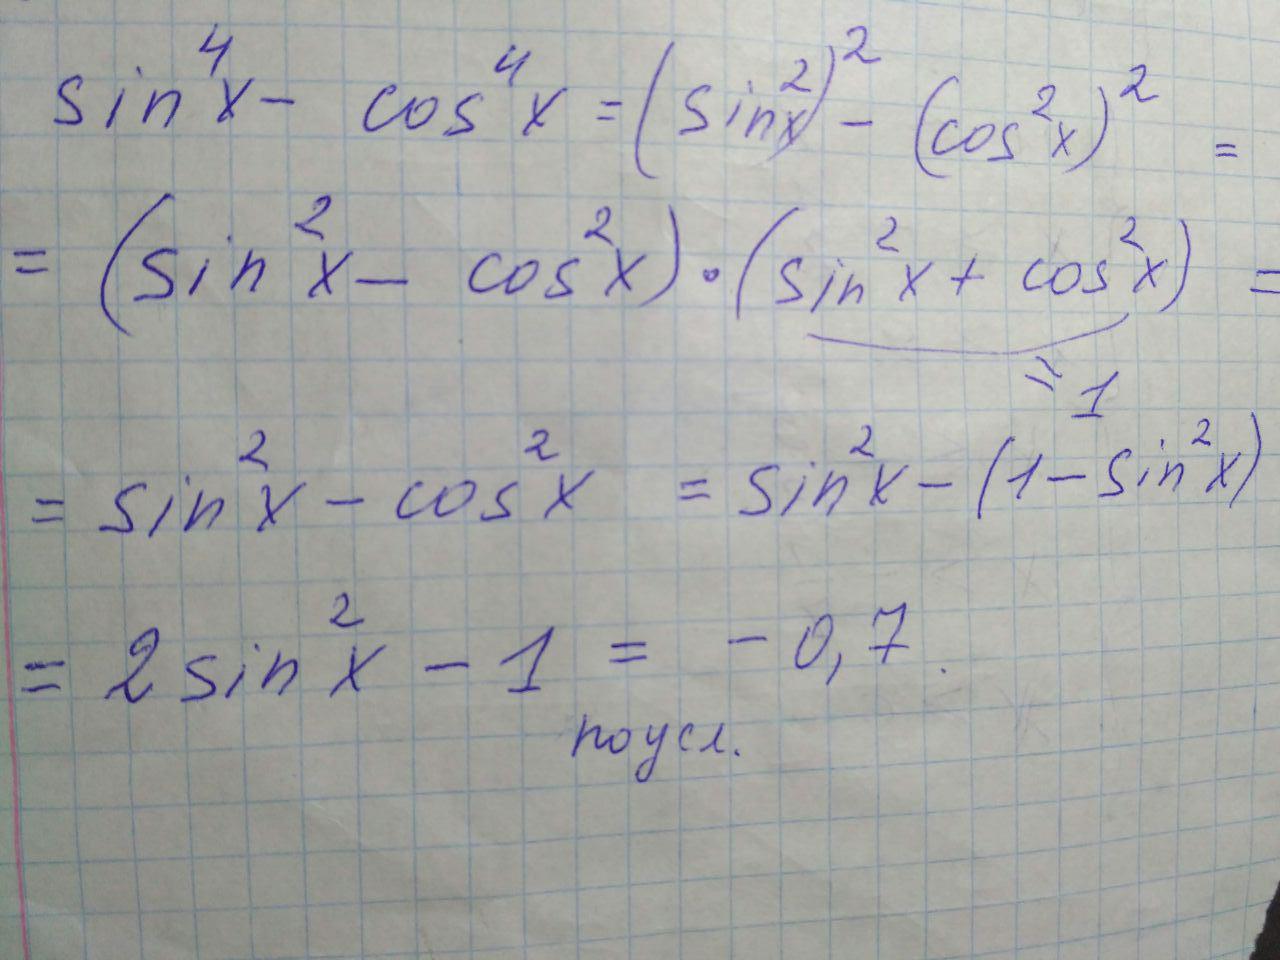 sin⁴x - cos⁴x = (sin²x)² - (cos²x)² =
= (sin²x - cos²x) · (sin²x + cos²x) =
= 1
= sin²x - cos²x = sin²x - (1 - sin²x)
= 2 sin²x - 1 = - 0,7.
по усл.